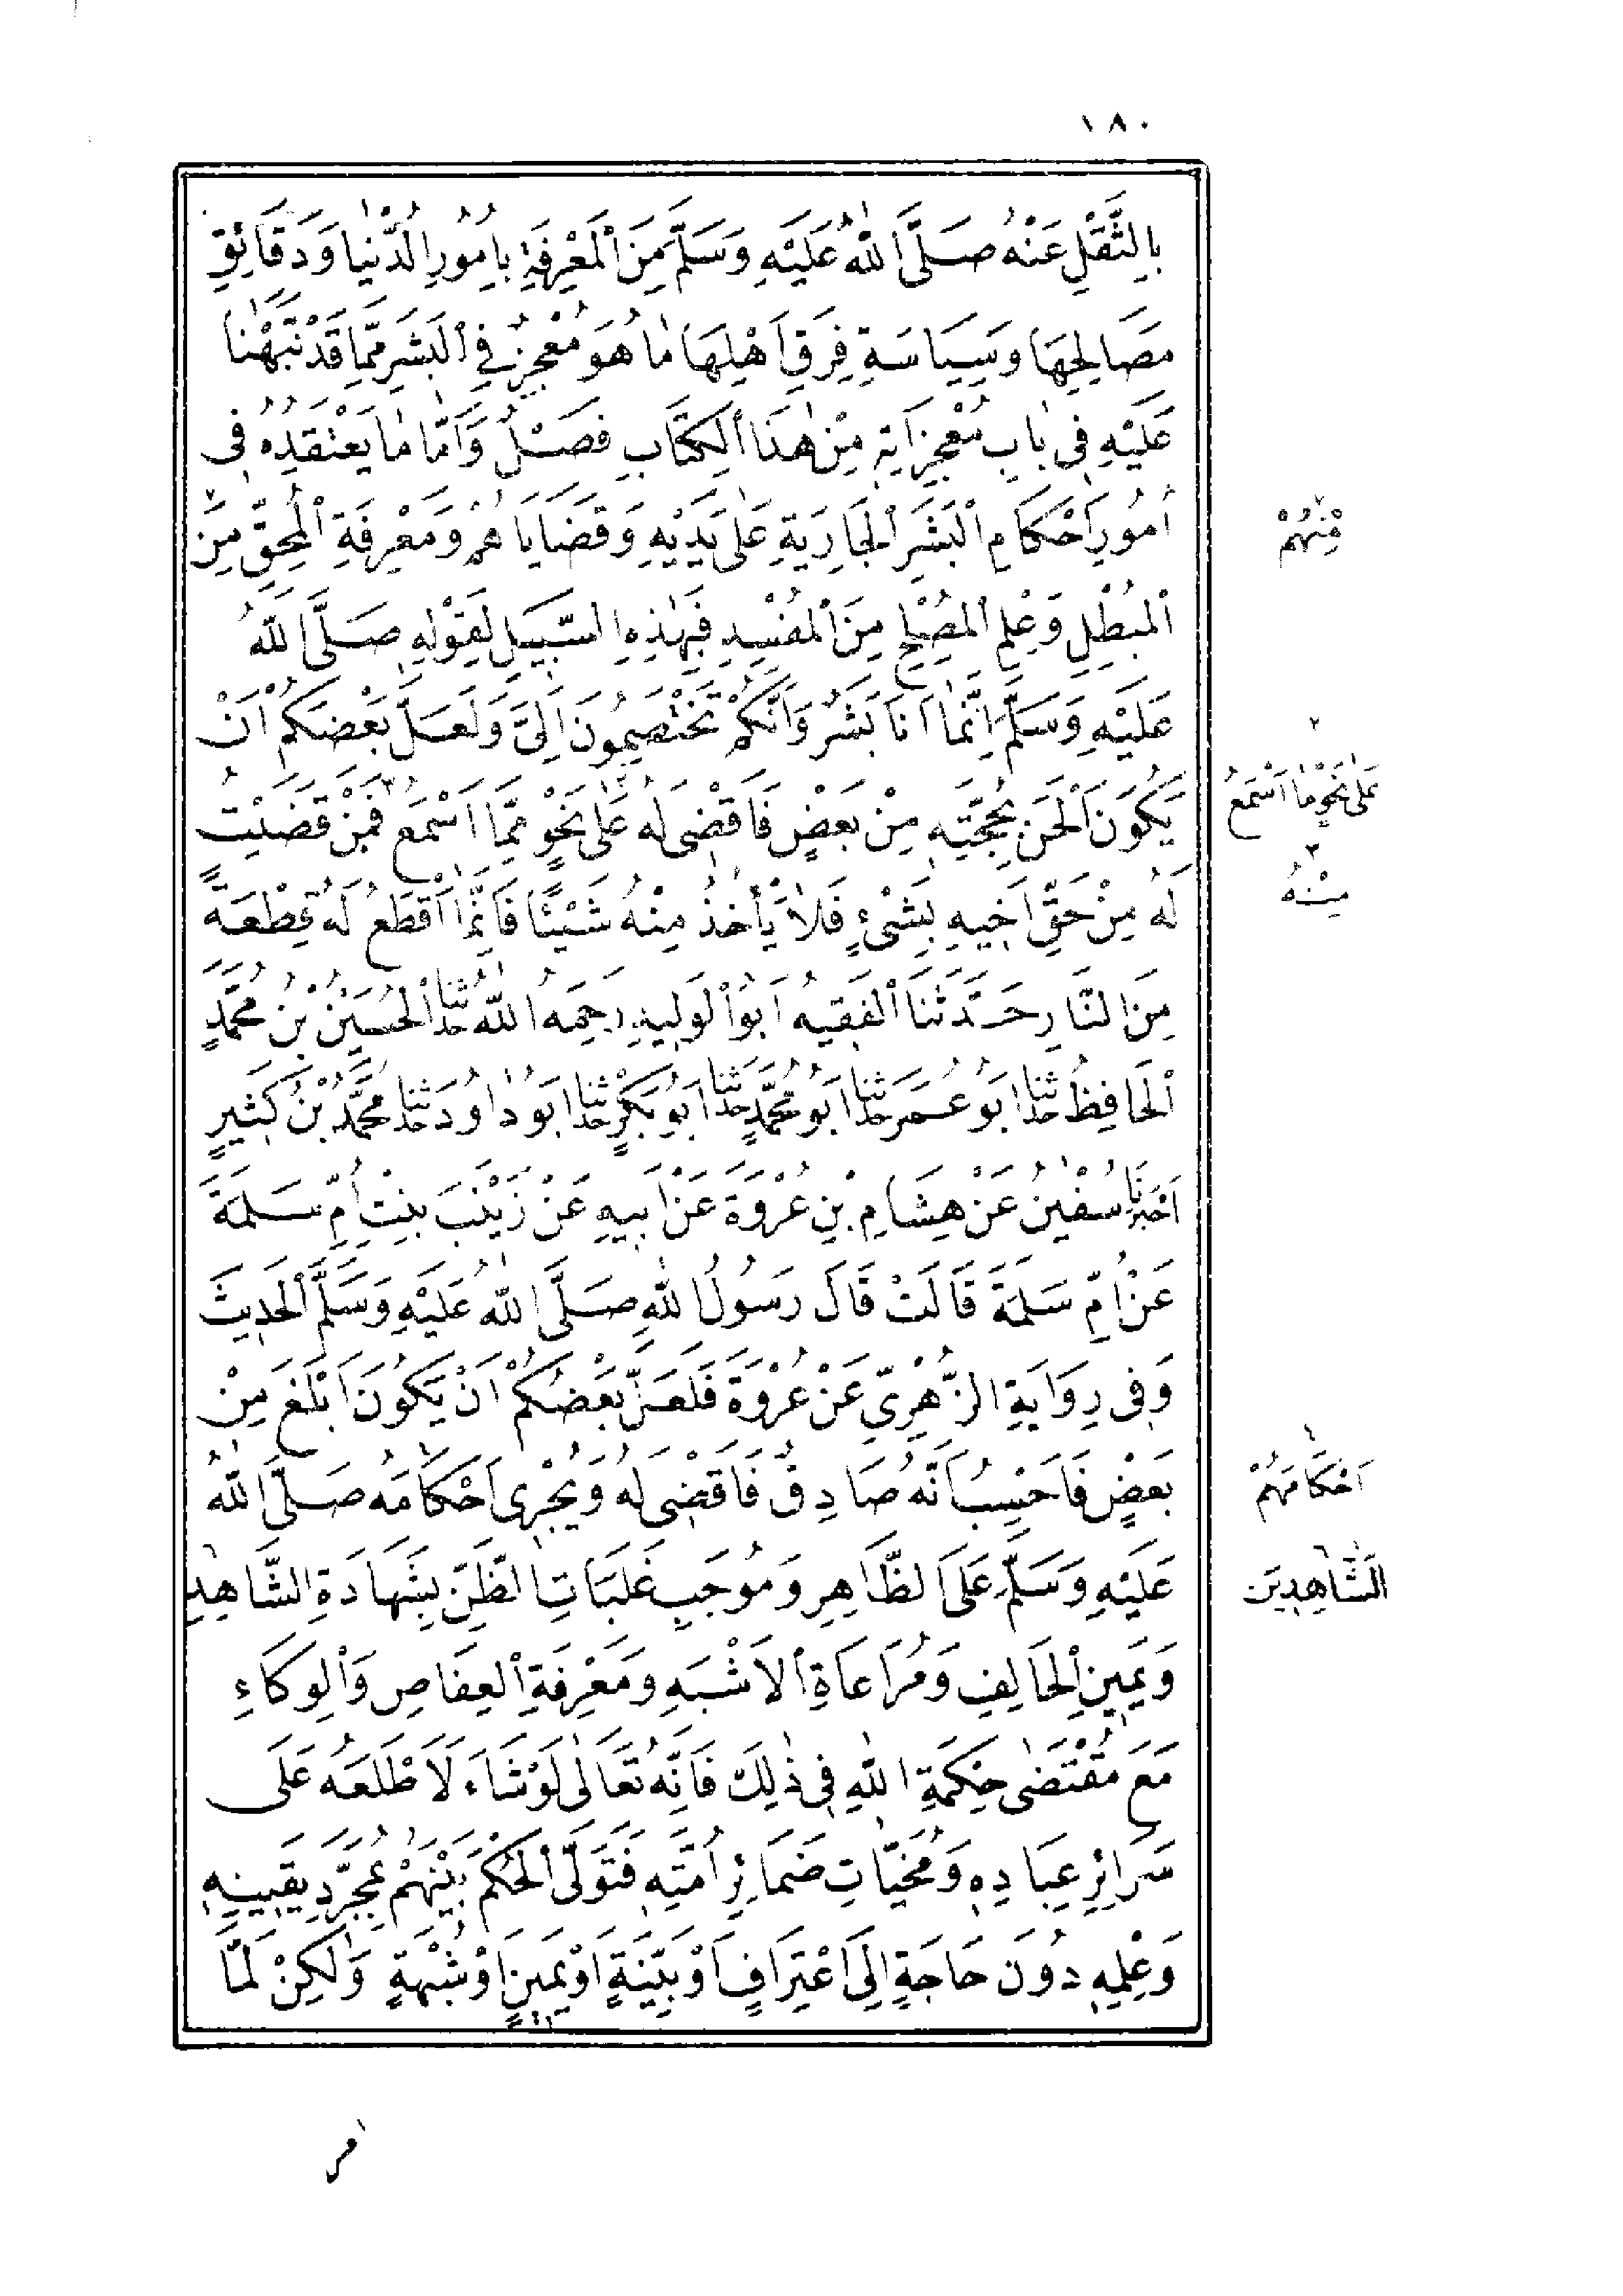 ١٨٠
بِالنَّقْلِ عَنْهُ صَلَّى اللّٰهُ عَلَيْهِ وَسَلَّمَ مِنَ الْمَعْرِفَةِ بِاُمُورِ الدُّنْيَا وَدَقَائِقِ
مَصَالِحِهَا وَسِيَاسَةِ فِرَقِ اَهْلِهَا مَا هُوَ مُعْجِزٌ فِي الْبَشَرِ مِمَّا قَدْ نَبَّهْنَا
عَلَيْهِ فِي بَابِ مُعْجِزَاتِهِ مِنْ هٰذَا الْكِتَابِ فَصْلٌ وَاَمَّا مَا يَعْتَقِدُهُ فِي
اُمُورِ اَحْكَامِ الْبَشَرِ الْجَارِيَةِ عَلَى يَدَيْهِ وَقَضَايَاهُمْ وَمَعْرِفَةِ الْمُحِقِّ مِنَ
الْمُبْطِلِ وَعِلْمِ الْمُصْلِحِ مِنَ الْمُفْسِدِ فَبِهٰذِهِ السَّبِيلِ لِقَوْلِهِ صَلَّى اللّٰهُ
عَلَيْهِ وَسَلَّمَ اِنَّمَا اَنَا بَشَرٌ وَاِنَّكُمْ تَخْتَصِمُونَ اِلَيَّ وَلَعَلَّ بَعْضَكُمْ اَنْ
يَكُونَ اَلْحَنَ بِحُجَّتِهِ مِنْ بَعْضٍ فَاَقْضِيَ لَهُ عَلٰى نَحْوٍ مِمَّا اَسْمَعُ فَمَنْ قَضَيْتُ
لَهُ مِنْ حَقِّ اَخِيهِ بِشَيْءٍ فَلَا يَأْخُذْ مِنْهُ شَيْئًا فَاِنَّمَا اَقْطَعُ لَهُ قِطْعَةً
مِنَ النَّارِ حَدَّثَنَا الْفَقِيهُ اَبُو الْوَلِيدِ رَحِمَهُ اللّٰهُ حَدَّثَنَا الْحُسَيْنُ بْنُ مُحَمَّدٍ
الْحَافِظُ حَدَّثَنَا اَبُو عُمَرَ حَدَّثَنَا اَبُو مُحَمَّدٍ حَدَّثَنَا اَبُو بَكْرٍ حَدَّثَنَا اَبُو دَاوُدَ حَدَّثَنَا مُحَمَّدُ بْنُ كَثِيرٍ
اَخْبَرَنَا سُفْيٰنُ عَنْ هِشَامِ بْنِ عُرْوَةَ عَنْ اَبِيهِ عَنْ زَيْنَبَ بِنْتِ اُمِّ سَلَمَةَ
عَنْ اُمِّ سَلَمَةَ قَالَتْ قَالَ رَسُولُ اللّٰهِ صَلَّى اللّٰهُ عَلَيْهِ وَسَلَّمَ الْحَدِيثَ
وَفِي رِوَايَةِ الزُّهْرِيِّ عَنْ عُرْوَةَ فَلَعَلَّ بَعْضَكُمْ اَنْ يَكُونَ اَبْلَغَ مِنْ
بَعْضٍ فَاَحْسِبُ اَنَّهُ صَادِقٌ فَاَقْضِيَ لَهُ وَيُجْرِي اَحْكَامَهُ صَلَّى اللّٰهُ
عَلَيْهِ وَسَلَّمَ عَلَى الظَّاهِرِ وَمُوجَبِ غَلَبَاتِ الظَّنِّ بِشَهَادَةِ الشَّاهِدِ
وَيَمِينِ الْحَالِفِ وَمُرَاعَاةِ الْاَشْبَهِ وَمَعْرِفَةِ الْعِفَاصِ وَالْوِكَاءِ
مَعَ مُقْتَضٰى حِكْمَةِ اللّٰهِ فِي ذٰلِكَ فَاِنَّهُ تَعَالٰى لَوْ شَاءَ لَاَطْلَعَهُ عَلَى
سَرَائِرِ عِبَادِهِ وَمُخَبَّاٰتِ ضَمَائِرِ اُمَّتِهِ فَتَوَلَّى الْحُكْمَ بَيْنَهُمْ بِمُجَرَّدِ يَقِينِهِ
وَعِلْمِهِ دُونَ حَاجَةٍ اِلَى اعْتِرَافٍ اَوْ بَيِّنَةٍ اَوْ يَمِينٍ اَوْ شُبْهَةٍ وَلٰكِنْ لَمَّا
٧
مِنْهُمْ
٢
عَلٰى نَحْوِ مَا اَسْمَعُ
٣
مِنْهُ
اَحْكَامَهُمْ
الشَّاهِدِينَ
امر